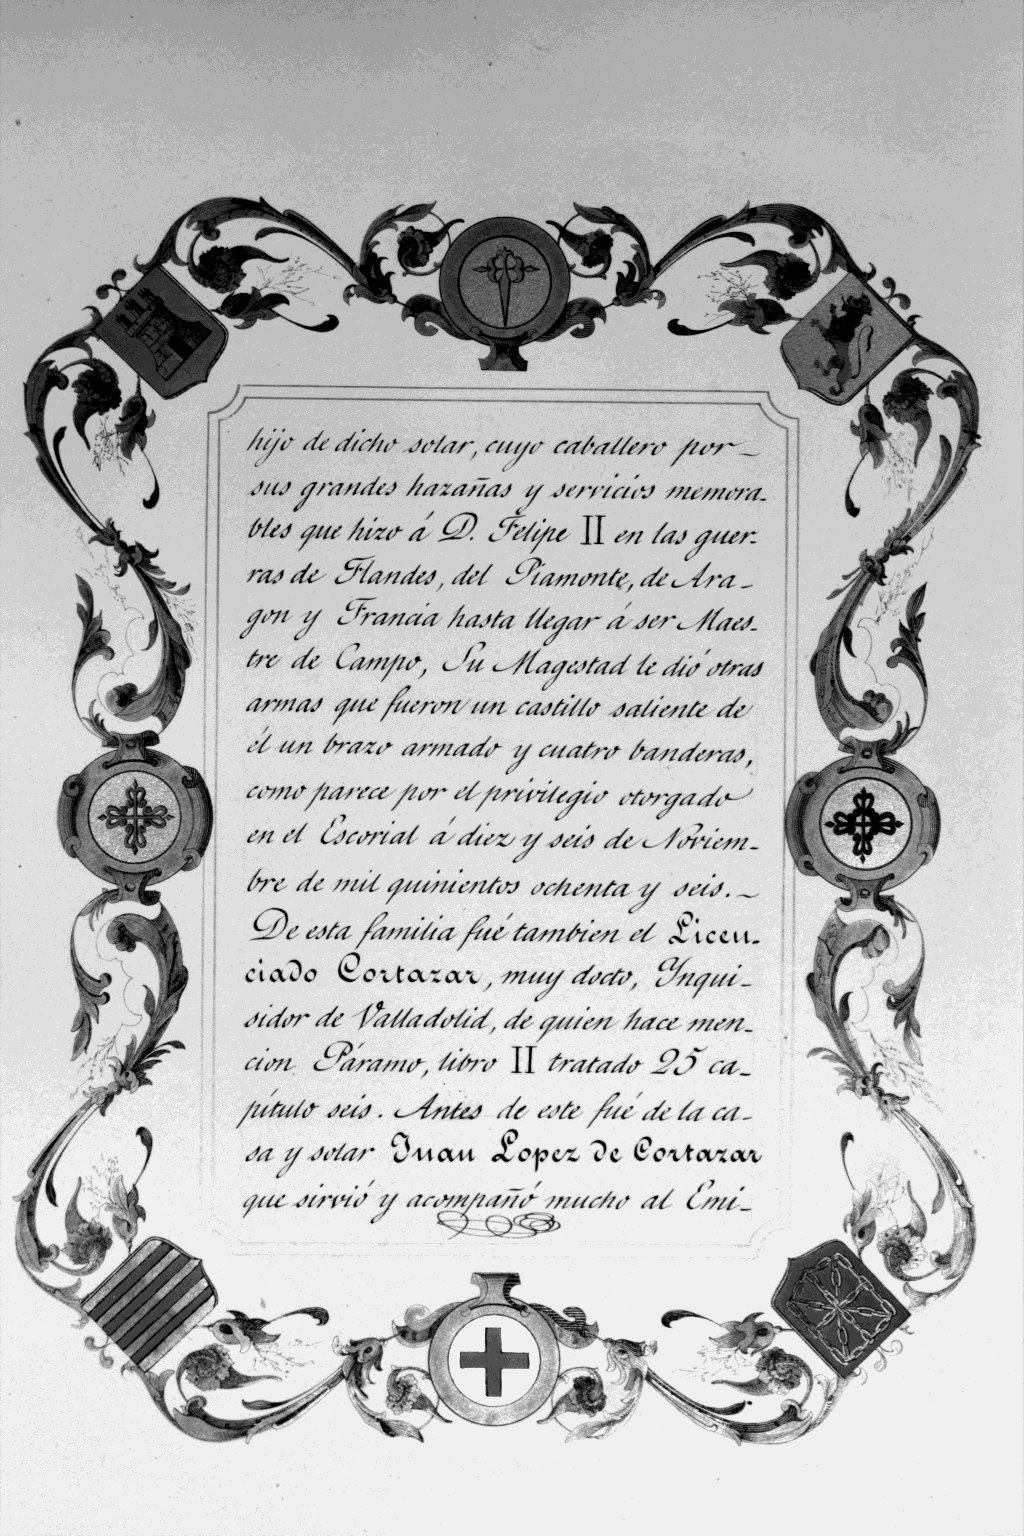 hijo de dicho solar, cuyo caballero por-
sus grandes hazañas y servicios memora-
bles que hizo á D. Felipe II en las guer-
ras de Flandes, del Piamonte, de Ara-
gon y Francia hasta llegar á ser Maes-
tre de Campo, Su Magestad le dió otras
armas que fueron un castillo saliente de
él un brazo armado y cuatro banderas,
como parece por el privilegio otorgado
en el Escorial á diez y seis de Noviem-
bre de mil quinientos ochenta y seis.-
De esta familia fué tambien el Licen-
ciado Cortazar, muy docto, Ynqui-
sidor de Valladolid, de quien hace men-
cion Páramo, libro II tratado 25 ca-
pítulo seis. Antes de este fué de la ca-
sa y solar Juan Lopez de Cortazar
que sirvió y acompañó mucho al Emi-